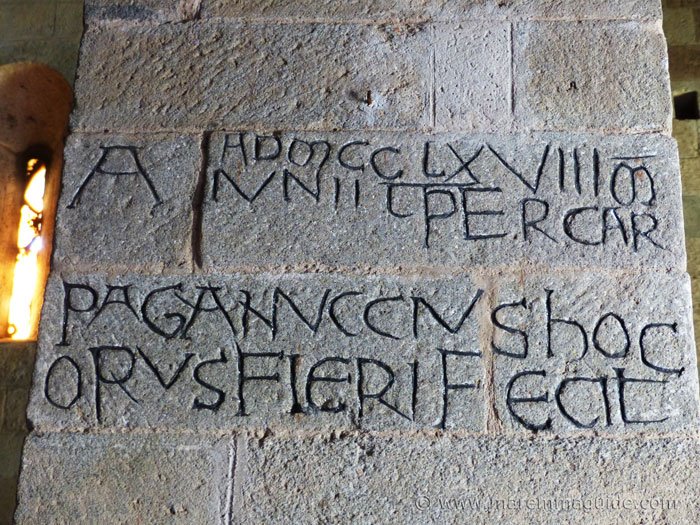 A AD M CCC LXVIII M
IVNII TPE R CAR
PAGANVCCIVS HOC
ORVS FIERI FECIT
© www.maremmaguide.com